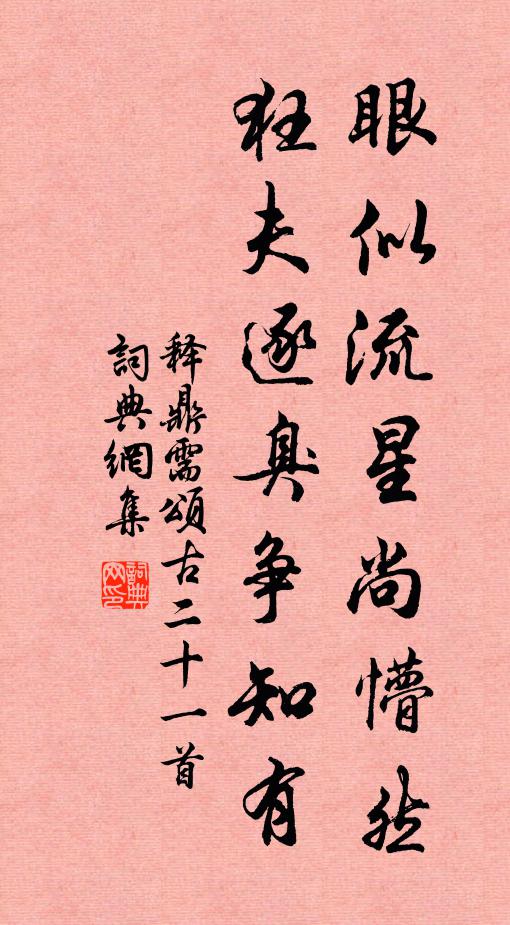 眼似流星尚懵然
狂夫逐臭争知有
释鼎需颂古二十一首
詞典網集
詞典网印